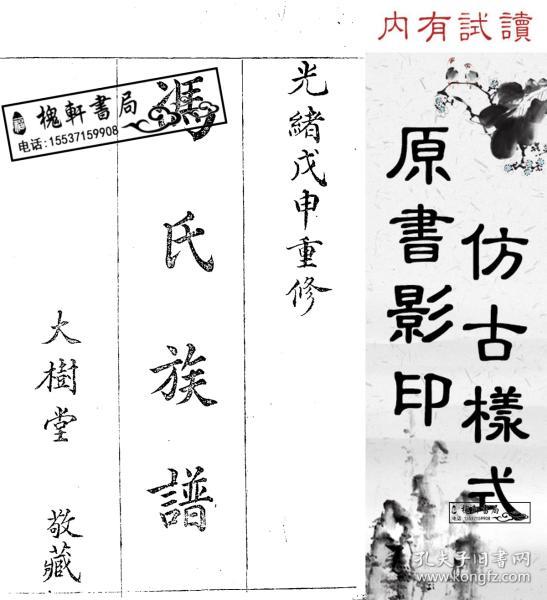 內有試讀
仿古樣式
原書影印
光緒戊申重修
馮氏族譜
大樹堂 敬藏
槐軒書局
电话:15537159908
槐軒書局
电话:15537159908
孔夫子旧书网
www.kongfz.com